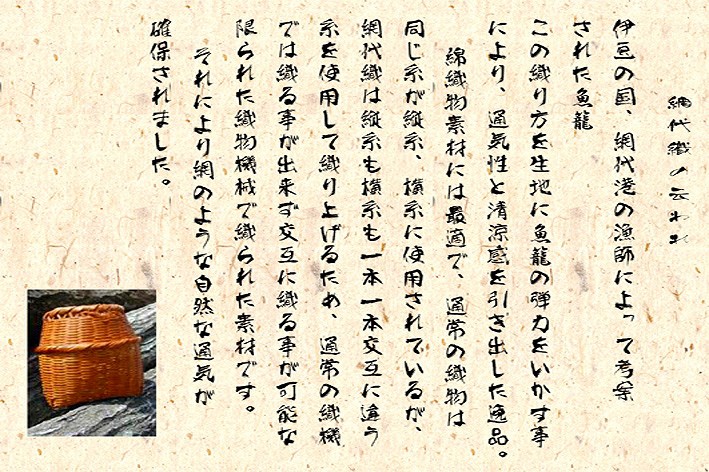 網代織の云われ
伊豆の国、網代港の漁師によって考案
された魚籠
この織り方を生地に魚籠の弾力をいかす事
により、通気性と清涼感を引き出した逸品。
綿織物素材には最適で、通常の織物は
同じ糸が縦糸、横糸に使用されているが、
網代織は縦糸も横糸も一本一本交互に違う
糸を使用して織り上げるため、通常の織機
では織る事が出来ず交互に織る事が可能な
限られた織物機械で織られた素材です。
それにより網のような自然な通気が
確保されました。